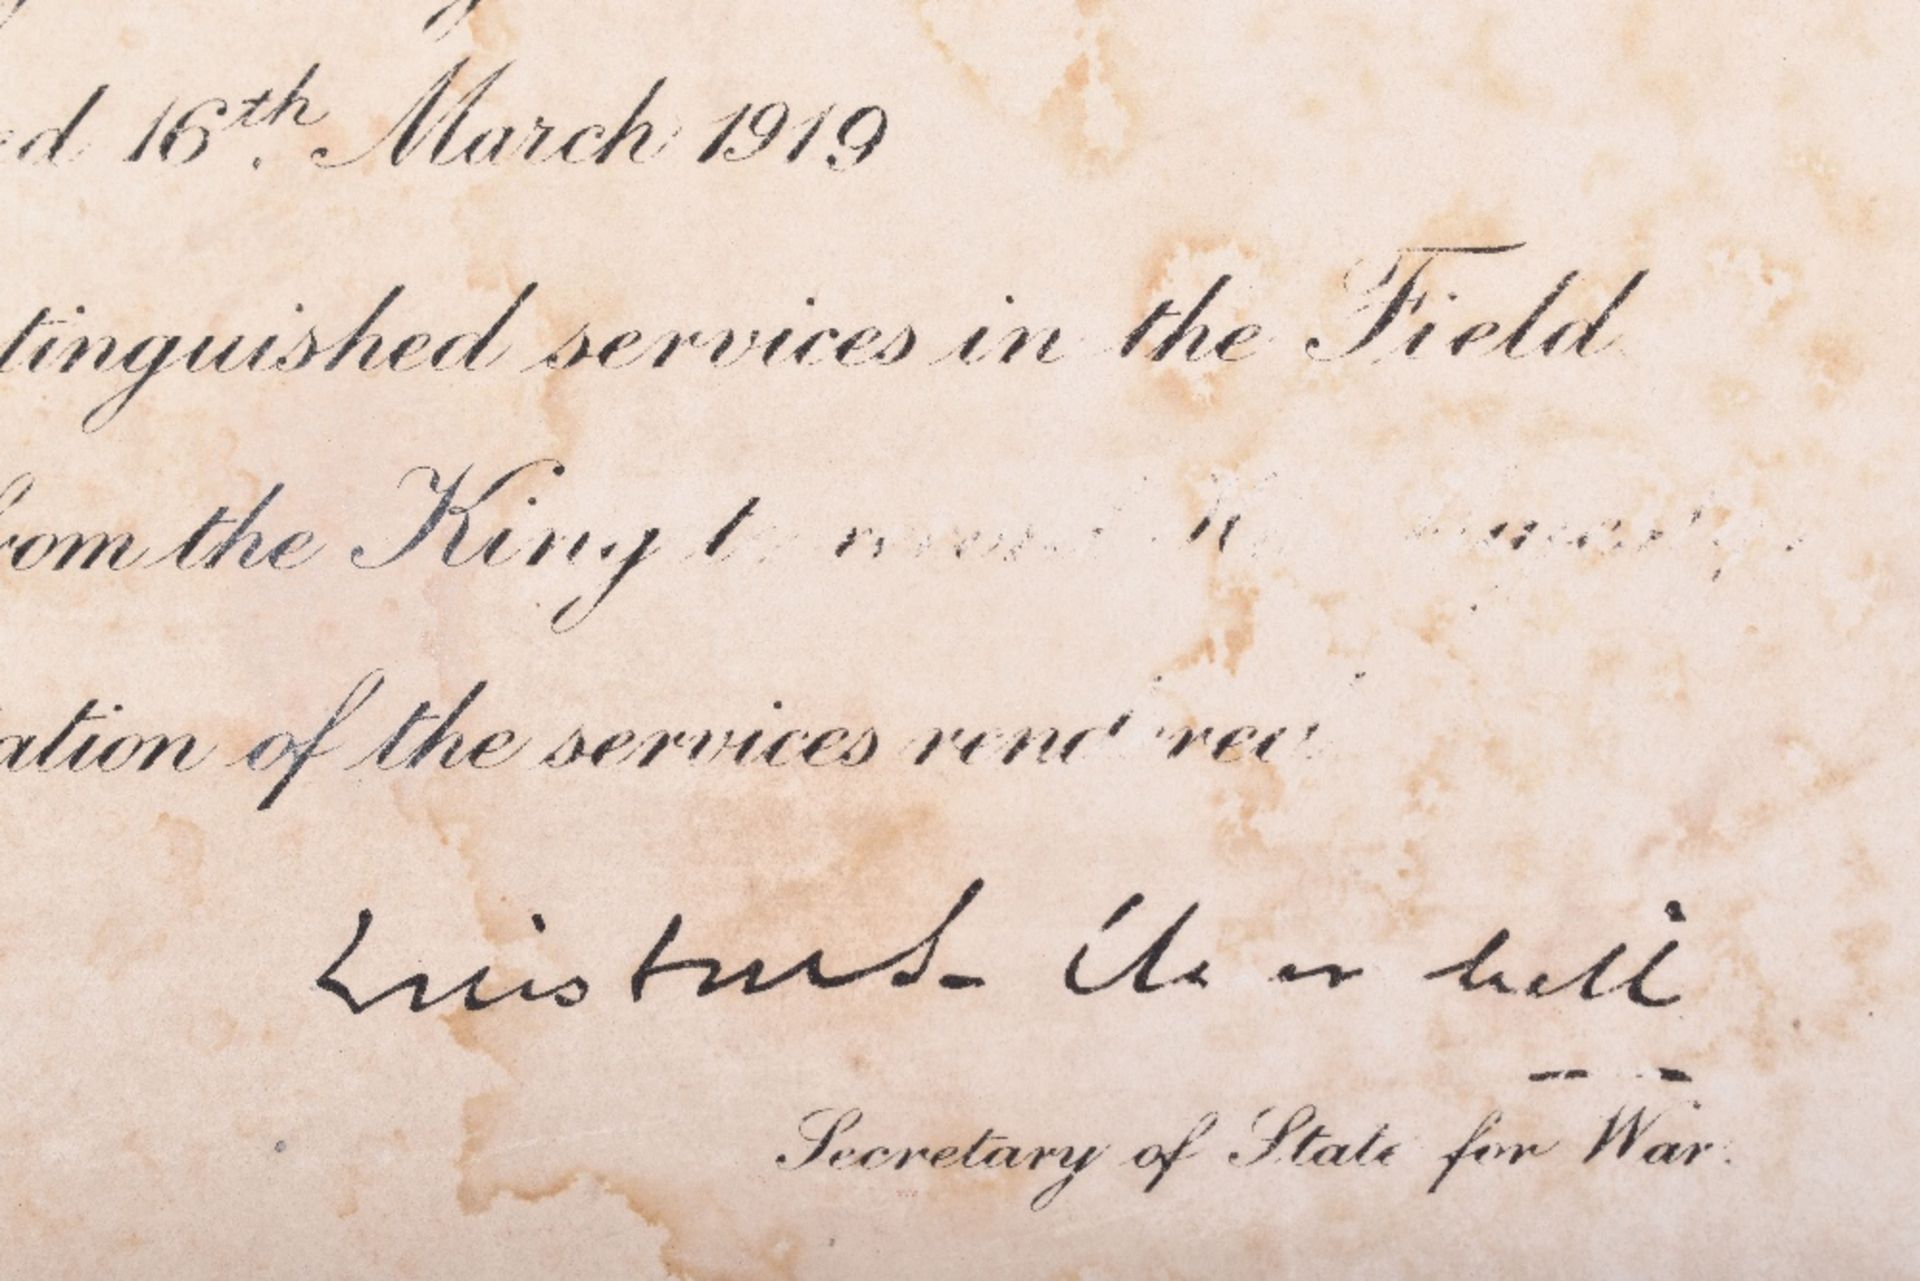 ed 16th. March 1919
tinguished services in the Field
rom the King to record His
ation of the services rendered
Winston S. Churchill
Secretary of State for War.